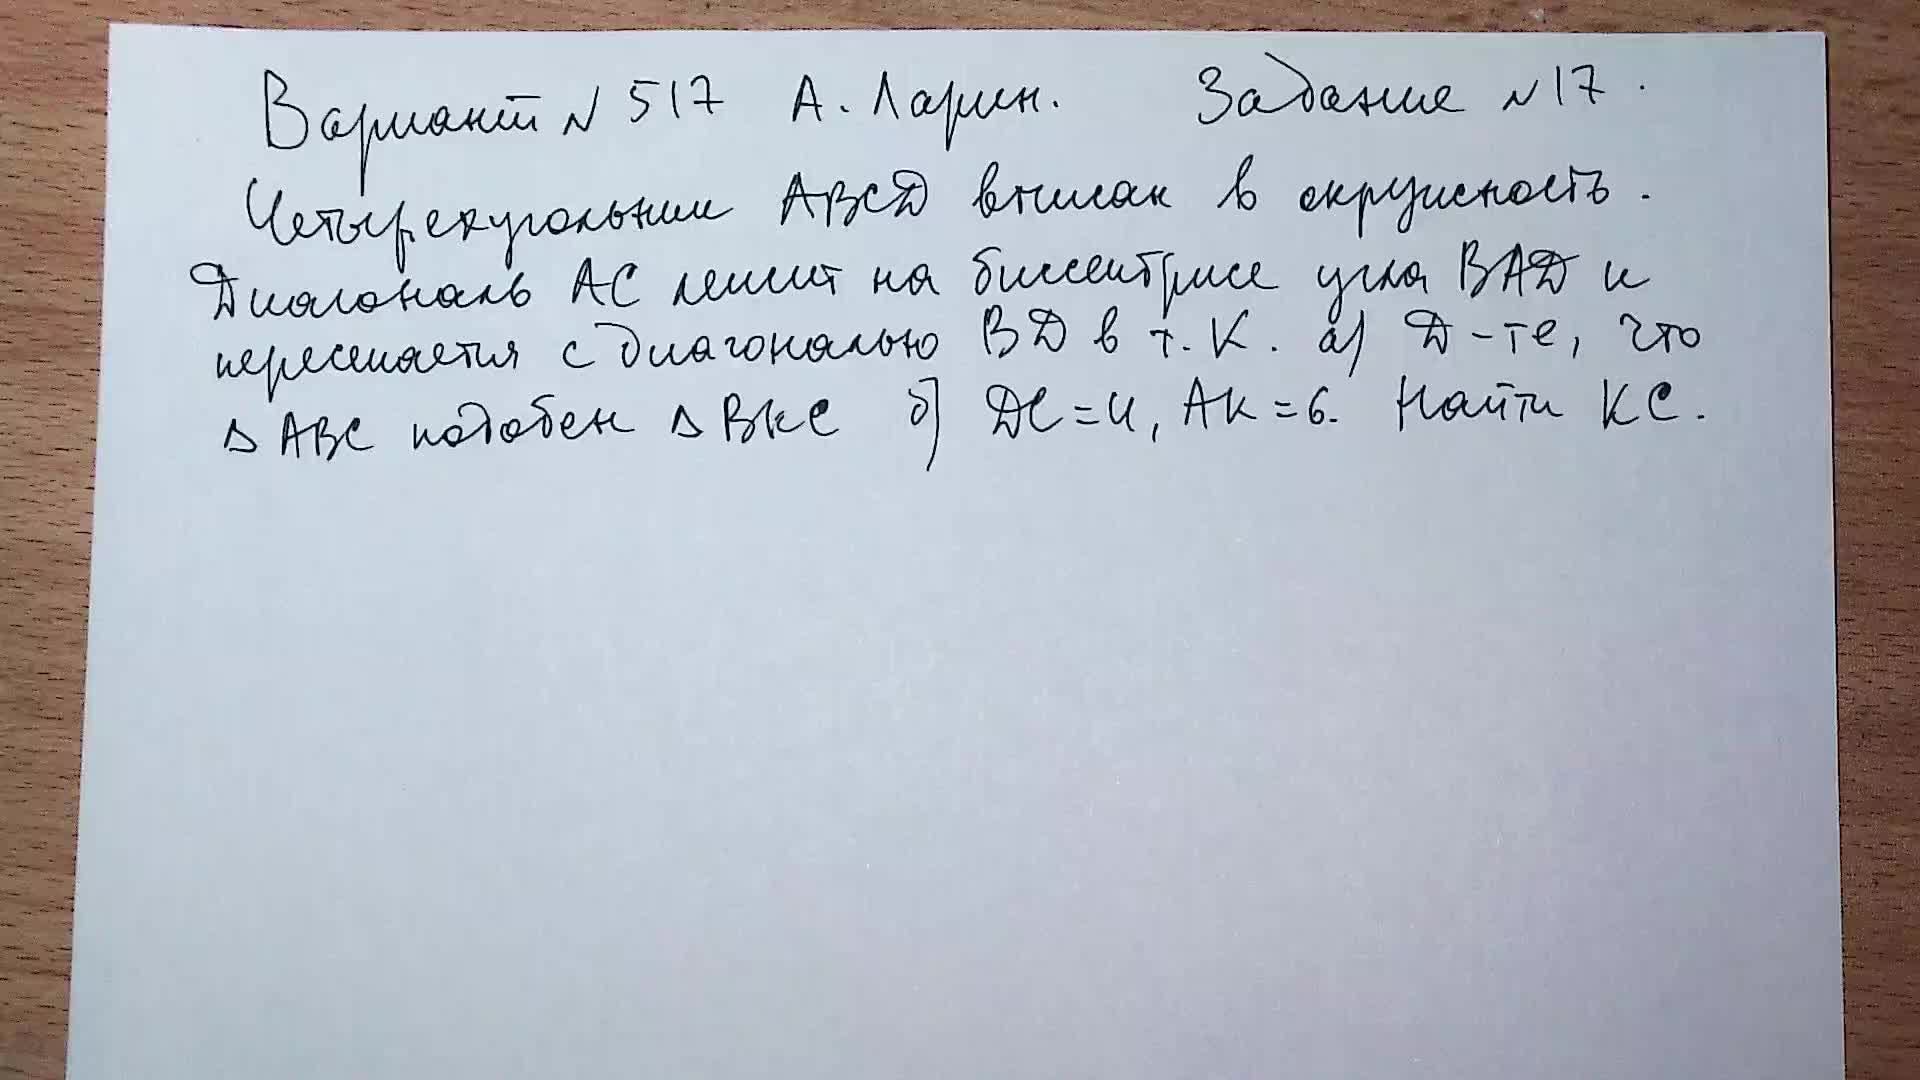 Вариант № 517 А. Ларин. Задание № 17.
Четырехугольник ABCD вписан в окружность.
Диагональ AC лежит на биссектрисе угла BAD и
пересекается с диагональю BD в т. K. а) Д-те, что
△ ABC подобен △ BKC б) DC = 4, AK = 6. Найти KC.